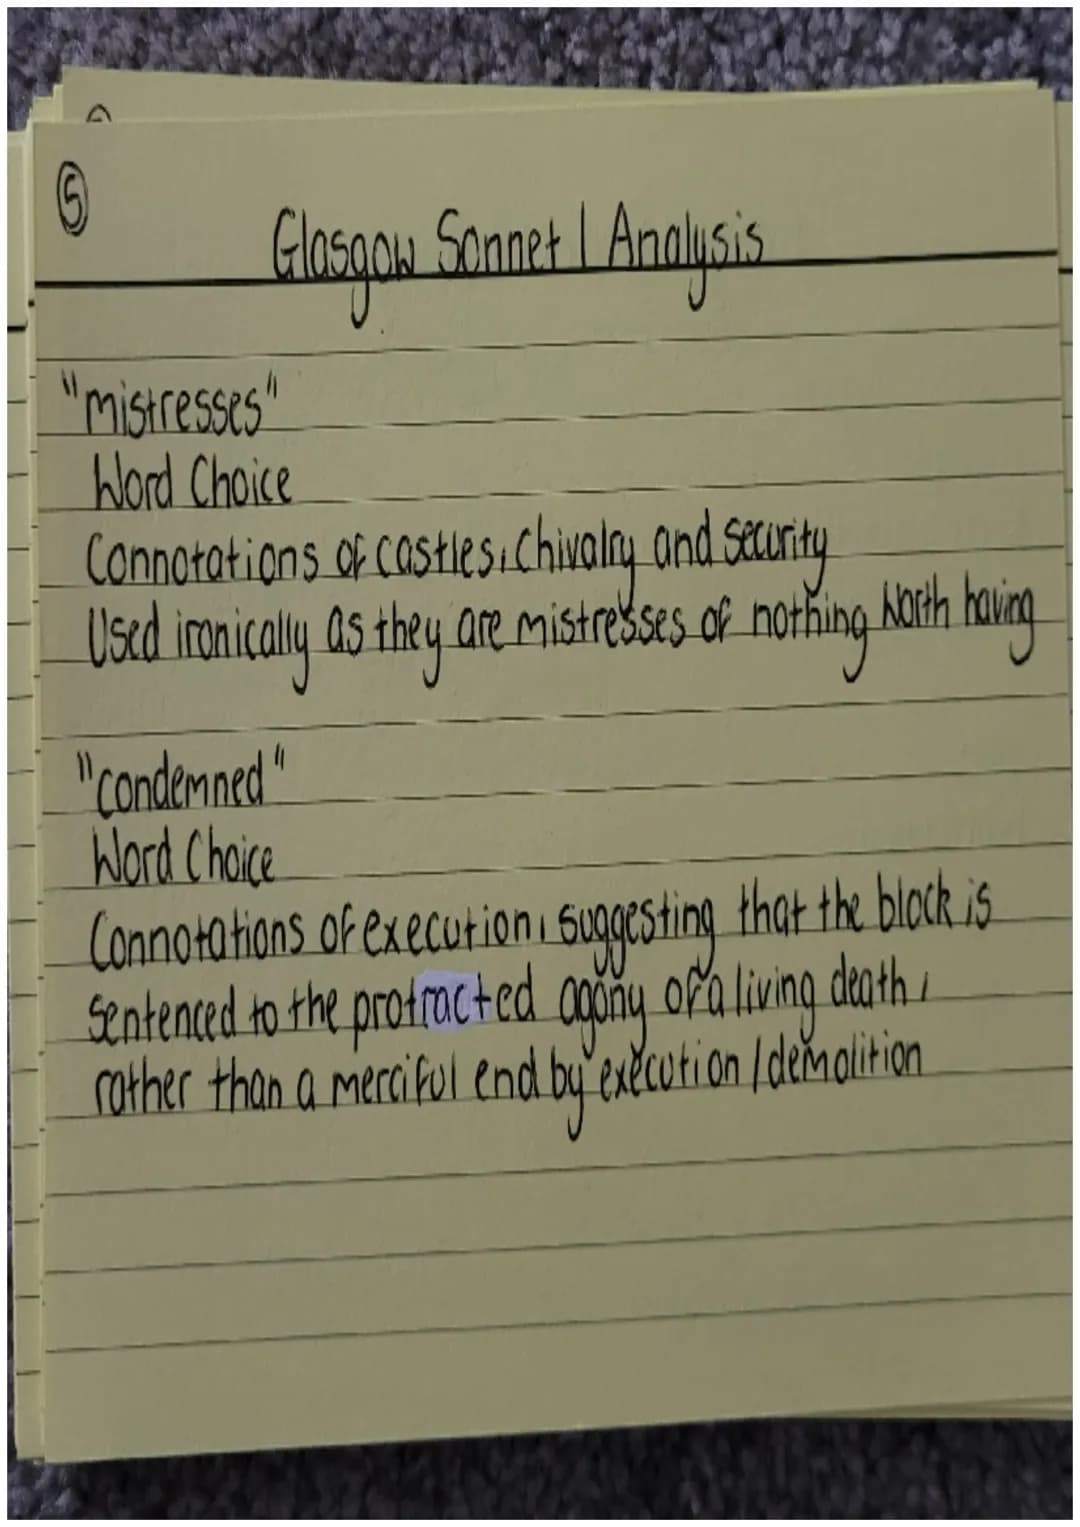 5
Glasgow Sonnet 1 Analysis
"mistresses"
Word Choice
Connotations of castles, chivalry and security
Used ironically as they are mistresses of nothing worth having
"condemned"
Word Choice
Connotations of execution, suggesting that the block is
sentenced to the protracted agony of a living death,
rather than a merciful end by execution / demolition